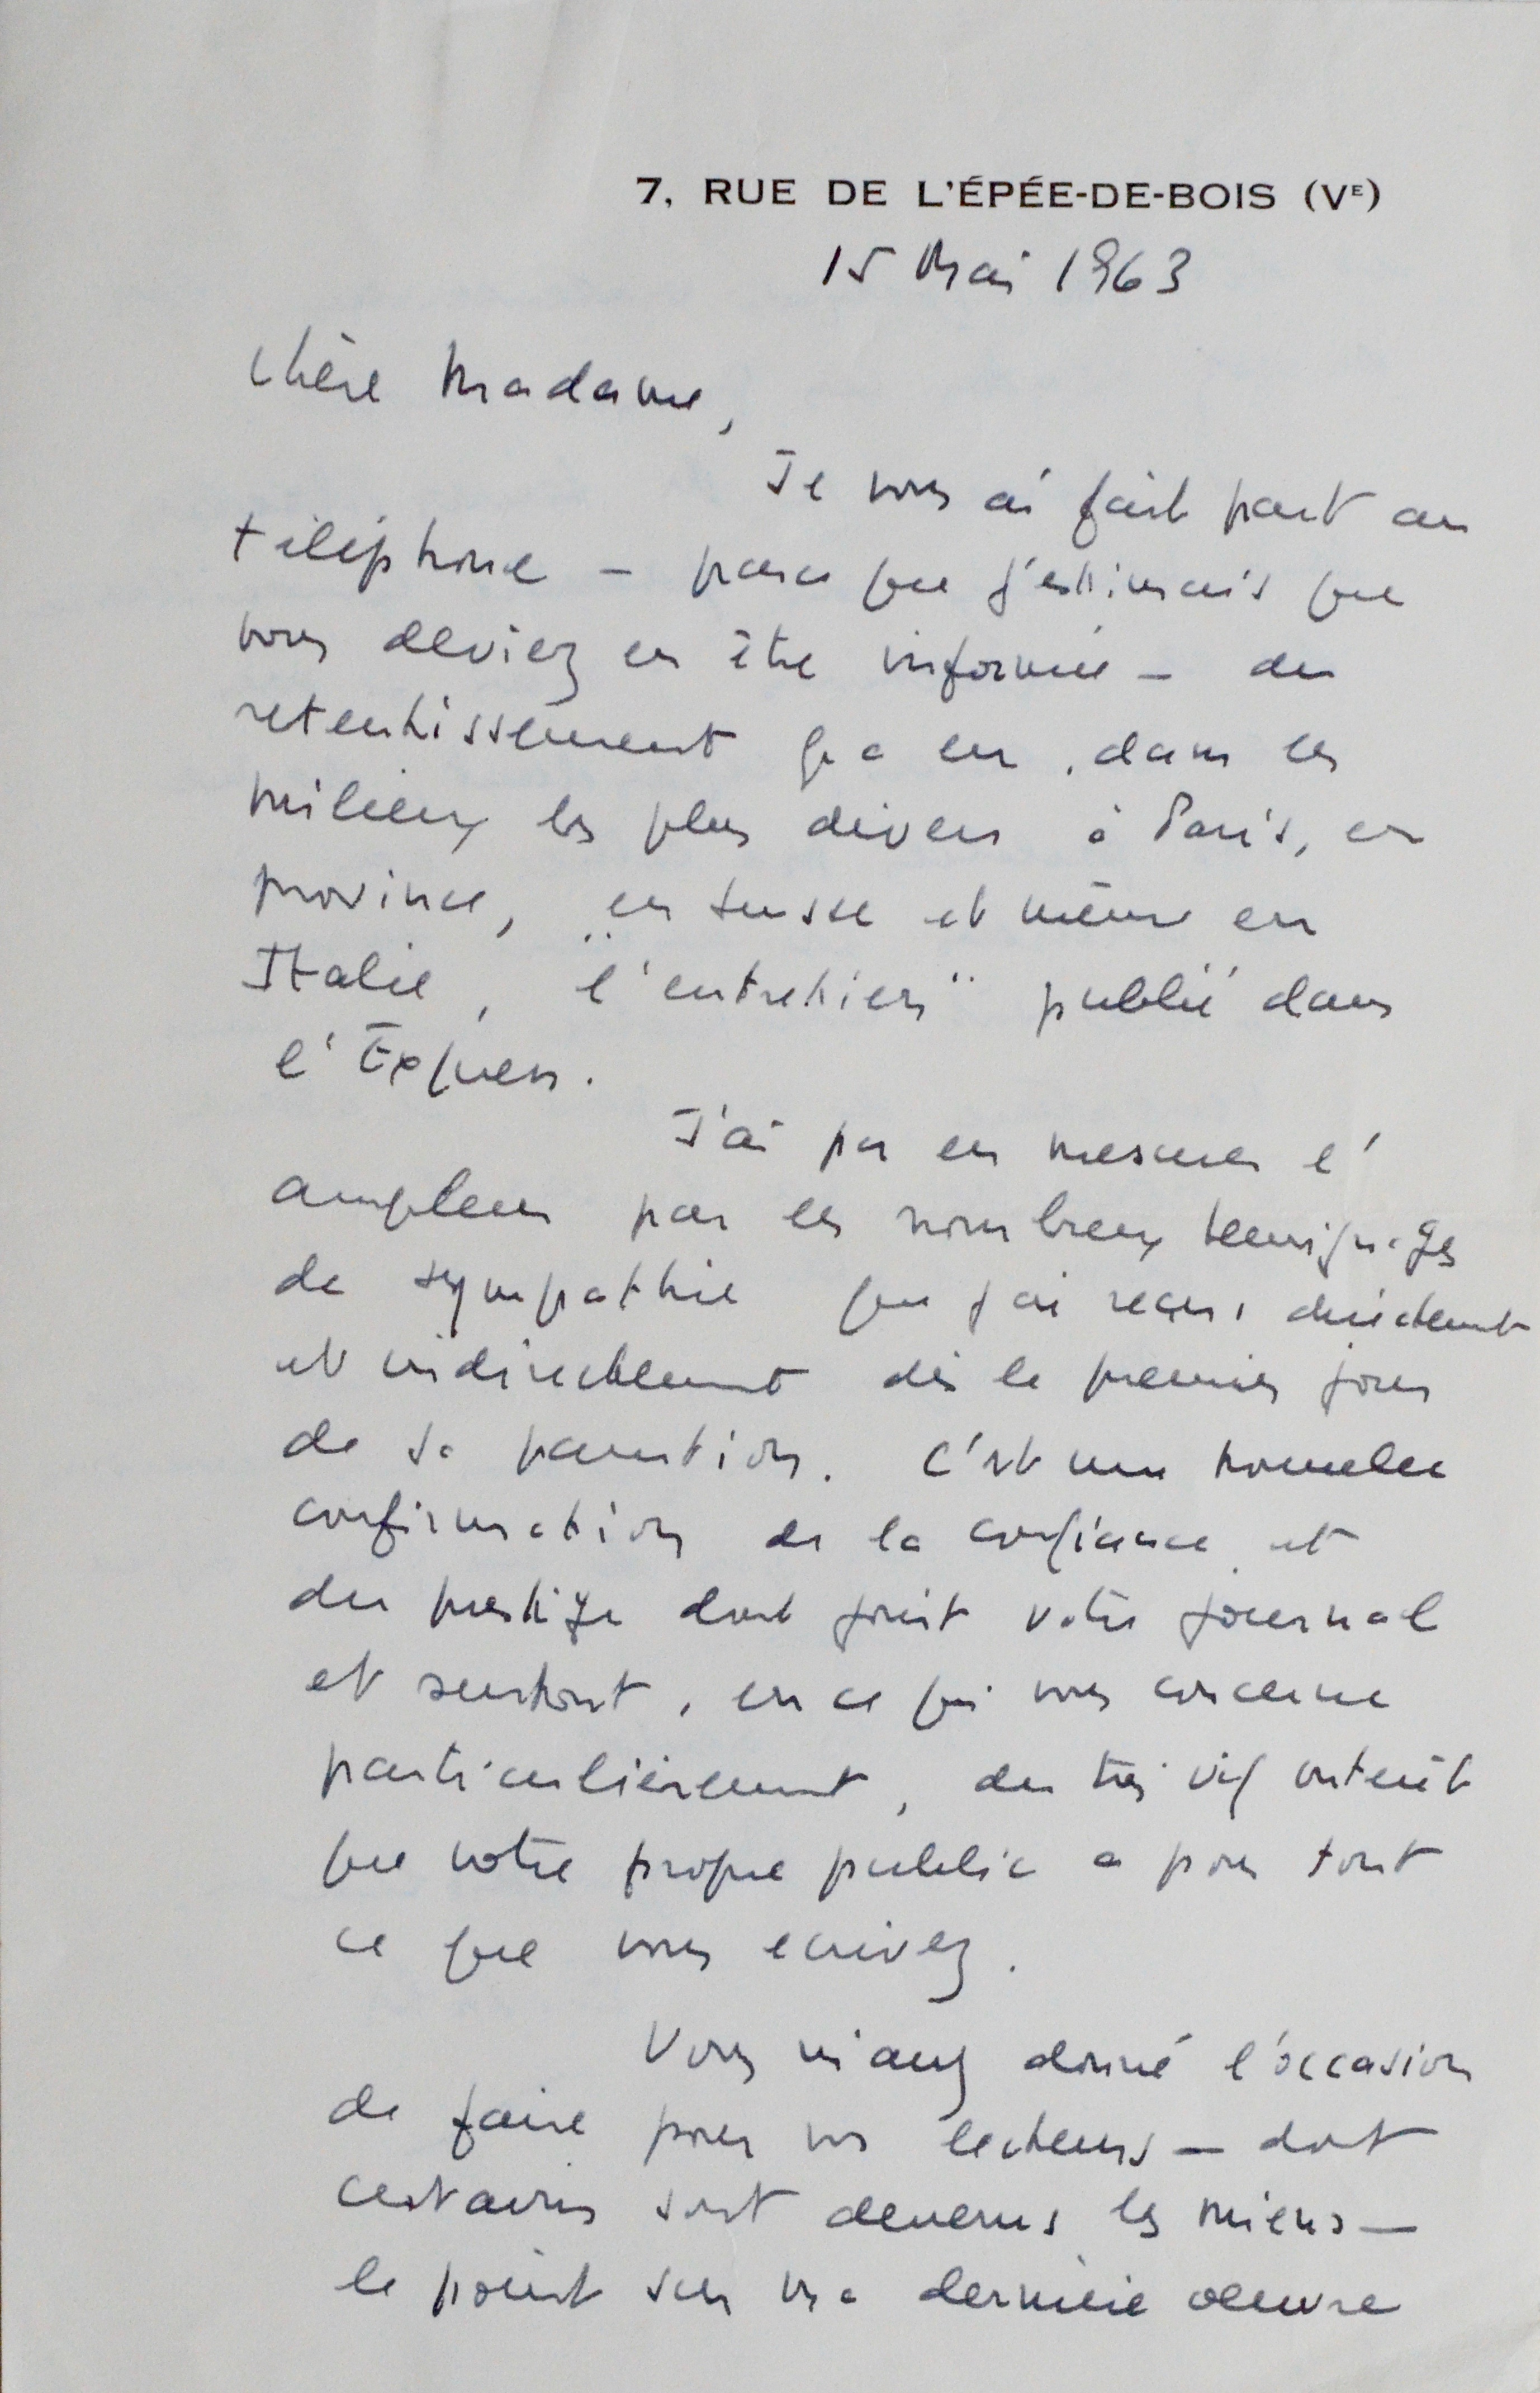 7, RUE DE L'ÉPÉE-DE-BOIS (Vᴱ)
15 Mai 1963
Chère Madame,
Je vous ai fait part au
téléphone – parce que j'estimais que
vous deviez en être informée – du
retentissement qu'a eu, dans les
milieux les plus divers à Paris, en
province, en Suisse et même en
Italie, "l'entretien" publié dans
l'Express.
J'ai pu en mesurer l'
ampleur par les nombreux temoignages
de sympathie que j'ai reçus directement
et indirectement dès le premier jour
de sa parution. C'est une nouvelle
confirmation de la confiance et
du prestige dont jouit votre journal
et surtout, en ce qui vous concerne
particulièrement, du très vif intérêt
que votre propre public a pour tout
ce que vous ecrivez.
Vous m'avez donné l'occasion
de faire pour vos lecteurs – dont
certains sont devenus les miens –
le point sur ma dernière oeuvre